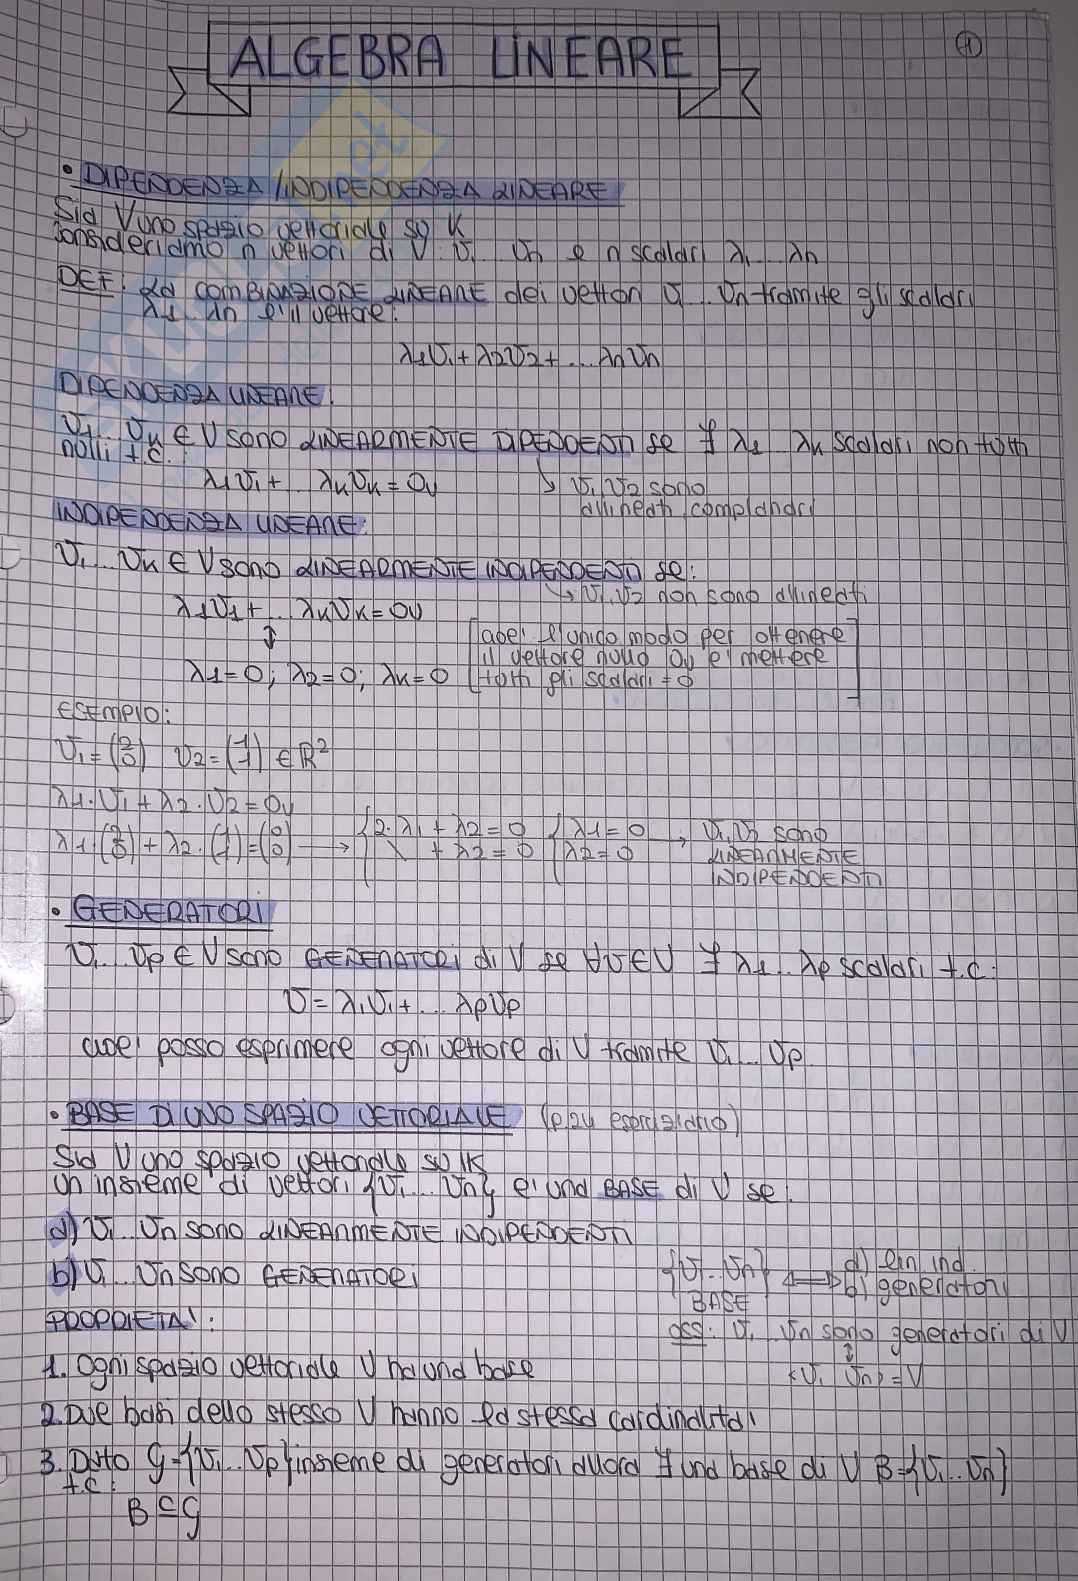 ALGEBRA LINEARE
1
• DIPENDENZA/INDIPENDENZA LINEARE
Sia V uno spazio vettoriale su K
consideriamo n vettori di V: v₁ vn e n scalari λ₁...λn
DEF: La COMBINAZIONE LINEARE dei vettori v₁...vn tramite gli scalari
λ₁ λn e' il vettore:
λ₁v₁+λ₂v₂+...λnvn
DIPENDENZA LINEARE:
v₁...vk ∈ V sono LINEARMENTE DIPENDENTI se ∃ λ₁ λk scalari non tutti
nulli t.c.:
λ₁v₁+... λkvk=0v
↳ v₁,v₂ sono
allineati, complanari
INDIPENDENZA LINEARE:
v₁...vk ∈ V sono LINEARMENTE INDIPENDENTI se:
↳ v₁,v₂ non sono allineati
λ₁v₁+... λkvk=0v
↕
λ₁=0; λ₂=0; λk=0
[cioe' l'unico modo per ottenere
il vettore nullo 0v e' mettere
tutti gli scalari=0]
ESEMPIO:
v₁=(2 0) v₂=(1 1) ∈ R²
λ₁·v₁+λ₂·v₂=0v
λ₁·(2 0)+λ₂·(1 1)=(0 0) → {2·λ₁+λ₂=0 {λ₁=0 → v₁,v₂ sono
\ +λ₂=0 {λ₂=0 LINEARMENTE
INDIPENDENTI
• GENERATORI
v₁...vp ∈ V sono GENERATORI di V se ∀v∈V ∃ λ₁...λp scalari t.c:
v=λ₁v₁+...λpvp
cioe' posso esprimere ogni vettore di V tramite v₁...vp.
• BASE DI UNO SPAZIO VETTORIALE (p.24 eserciziario)
Sia V uno spazio vettoriale su K
Un insieme di vettori {v₁...vn} e' una BASE di V se:
a) v₁...vn sono LINEARMENTE INDIPENDENTI
b) v₁...vn sono GENERATORI
{v₁...vn} ⟺ a) lin ind.
BASE b) generatori
PROPRIETA':
oss: v₁ vn sono generatori di V
↕
<v₁ vn>=V
1. Ogni spazio vettoriale V ha una base
2. Due basi dello stesso V hanno la stessa cardinalita'
3. Dato G={v₁...vp} insieme di generatori allora ∃ una base di V B={v₁...vn}
t.c:
B⊆G